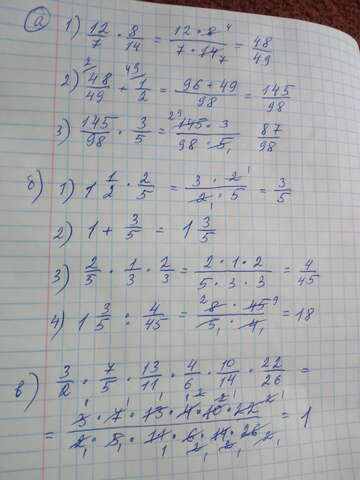 а) 1) 12/7 · 8/14 = 12 · 8 4 / 7 · 14 7 = 48/49
2) 2 48/49 + 49 1/2 = 96 + 49 / 98 = 145/98
3) 145/98 · 3/5 = 29 145 · 3 / 98 · 5 1 87/98
б) 1) 1 1/2 · 2/5 = 3 · 2 1 / 2 1 · 5 = 3/5
2) 1 + 3/5 = 1 3/5
3) 2/5 · 1/3 · 2/3 = 2 · 1 · 2 / 5 · 3 · 3 = 4/45
4) 1 3/5 : 4/45 = 2 8 · 45 9 / 5 1 · 4 1 = 18
в) 3/2 · 7/5 · 13/11 · 4/6 · 10/14 · 22/26 =
= 3 · 7 · 13 · 4 · 10 · 22 / 2 · 5 · 11 · 6 · 14 · 26 = 1